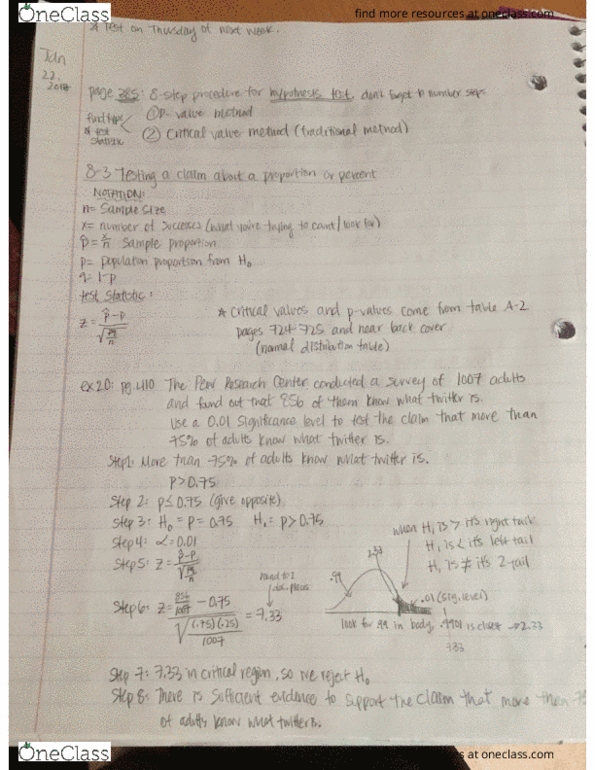 OneClass
find more resources at oneclass.com
* Test on Thursday of next week.
Jan
22,
2018
page 385: 8-step procedure for hypothesis test, don't forget to number steps
find type
of test
statistic
① P-value method
② Critical value method (traditional method)
8-3 Testing a claim about a proportion or percent
NOTATION:
n= Sample size
x= number of successes (what you're trying to count/look for)
p̂= x/n sample proportion
p= population proportion from H₀
q= 1-p
test statistic:
z= p̂-p / √(pq/n)
* critical values and p-values come from table A-2
pages 724-725 and near back cover
(normal distribution table)
ex20: pg.410 The Pew Research Center conducted a survey of 1007 adults
and found out that 856 of them know what twitter is.
use a 0.01 significance level to test the claim that more than
75% of adults know what twitter is.
Step1: More than 75% of adults know what twitter is.
p>0.75
Step 2: p≤0.75 (give opposite)
Step 3: H₀ = p= 0.75 H₁= p>0.75
Step4: α=0.01
Step5: z= p̂-p / √(pq/n)
when H₁ is > it's right tail
H₁ is < it's left tail
H₁ is ≠ it's 2-tail
Step6: z= 856/1007 - 0.75 / √((.75)(.25)/1007) = 7.33
round to 2
dec. places
.99
2.33
.01 (sig. level)
look for .99 in body, .9901 is closest → 2.33
7.33
Step 7: 7.33 in critical region, so we reject H₀
Step 8: There is sufficient evidence to support the claim that more than 75
of adults know what twitter is.
OneClass
find more resources at oneclass.com